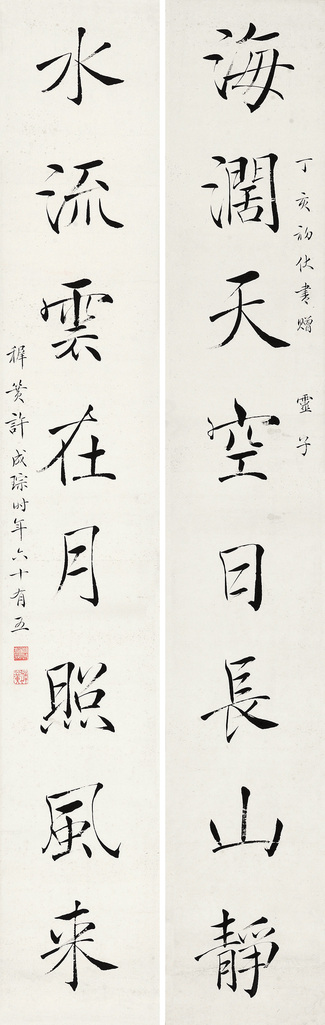 海濶天空日長山靜
丁亥初伏書贈 靈子
水流雲在月照風来
穉簧許成琮时年六十有五